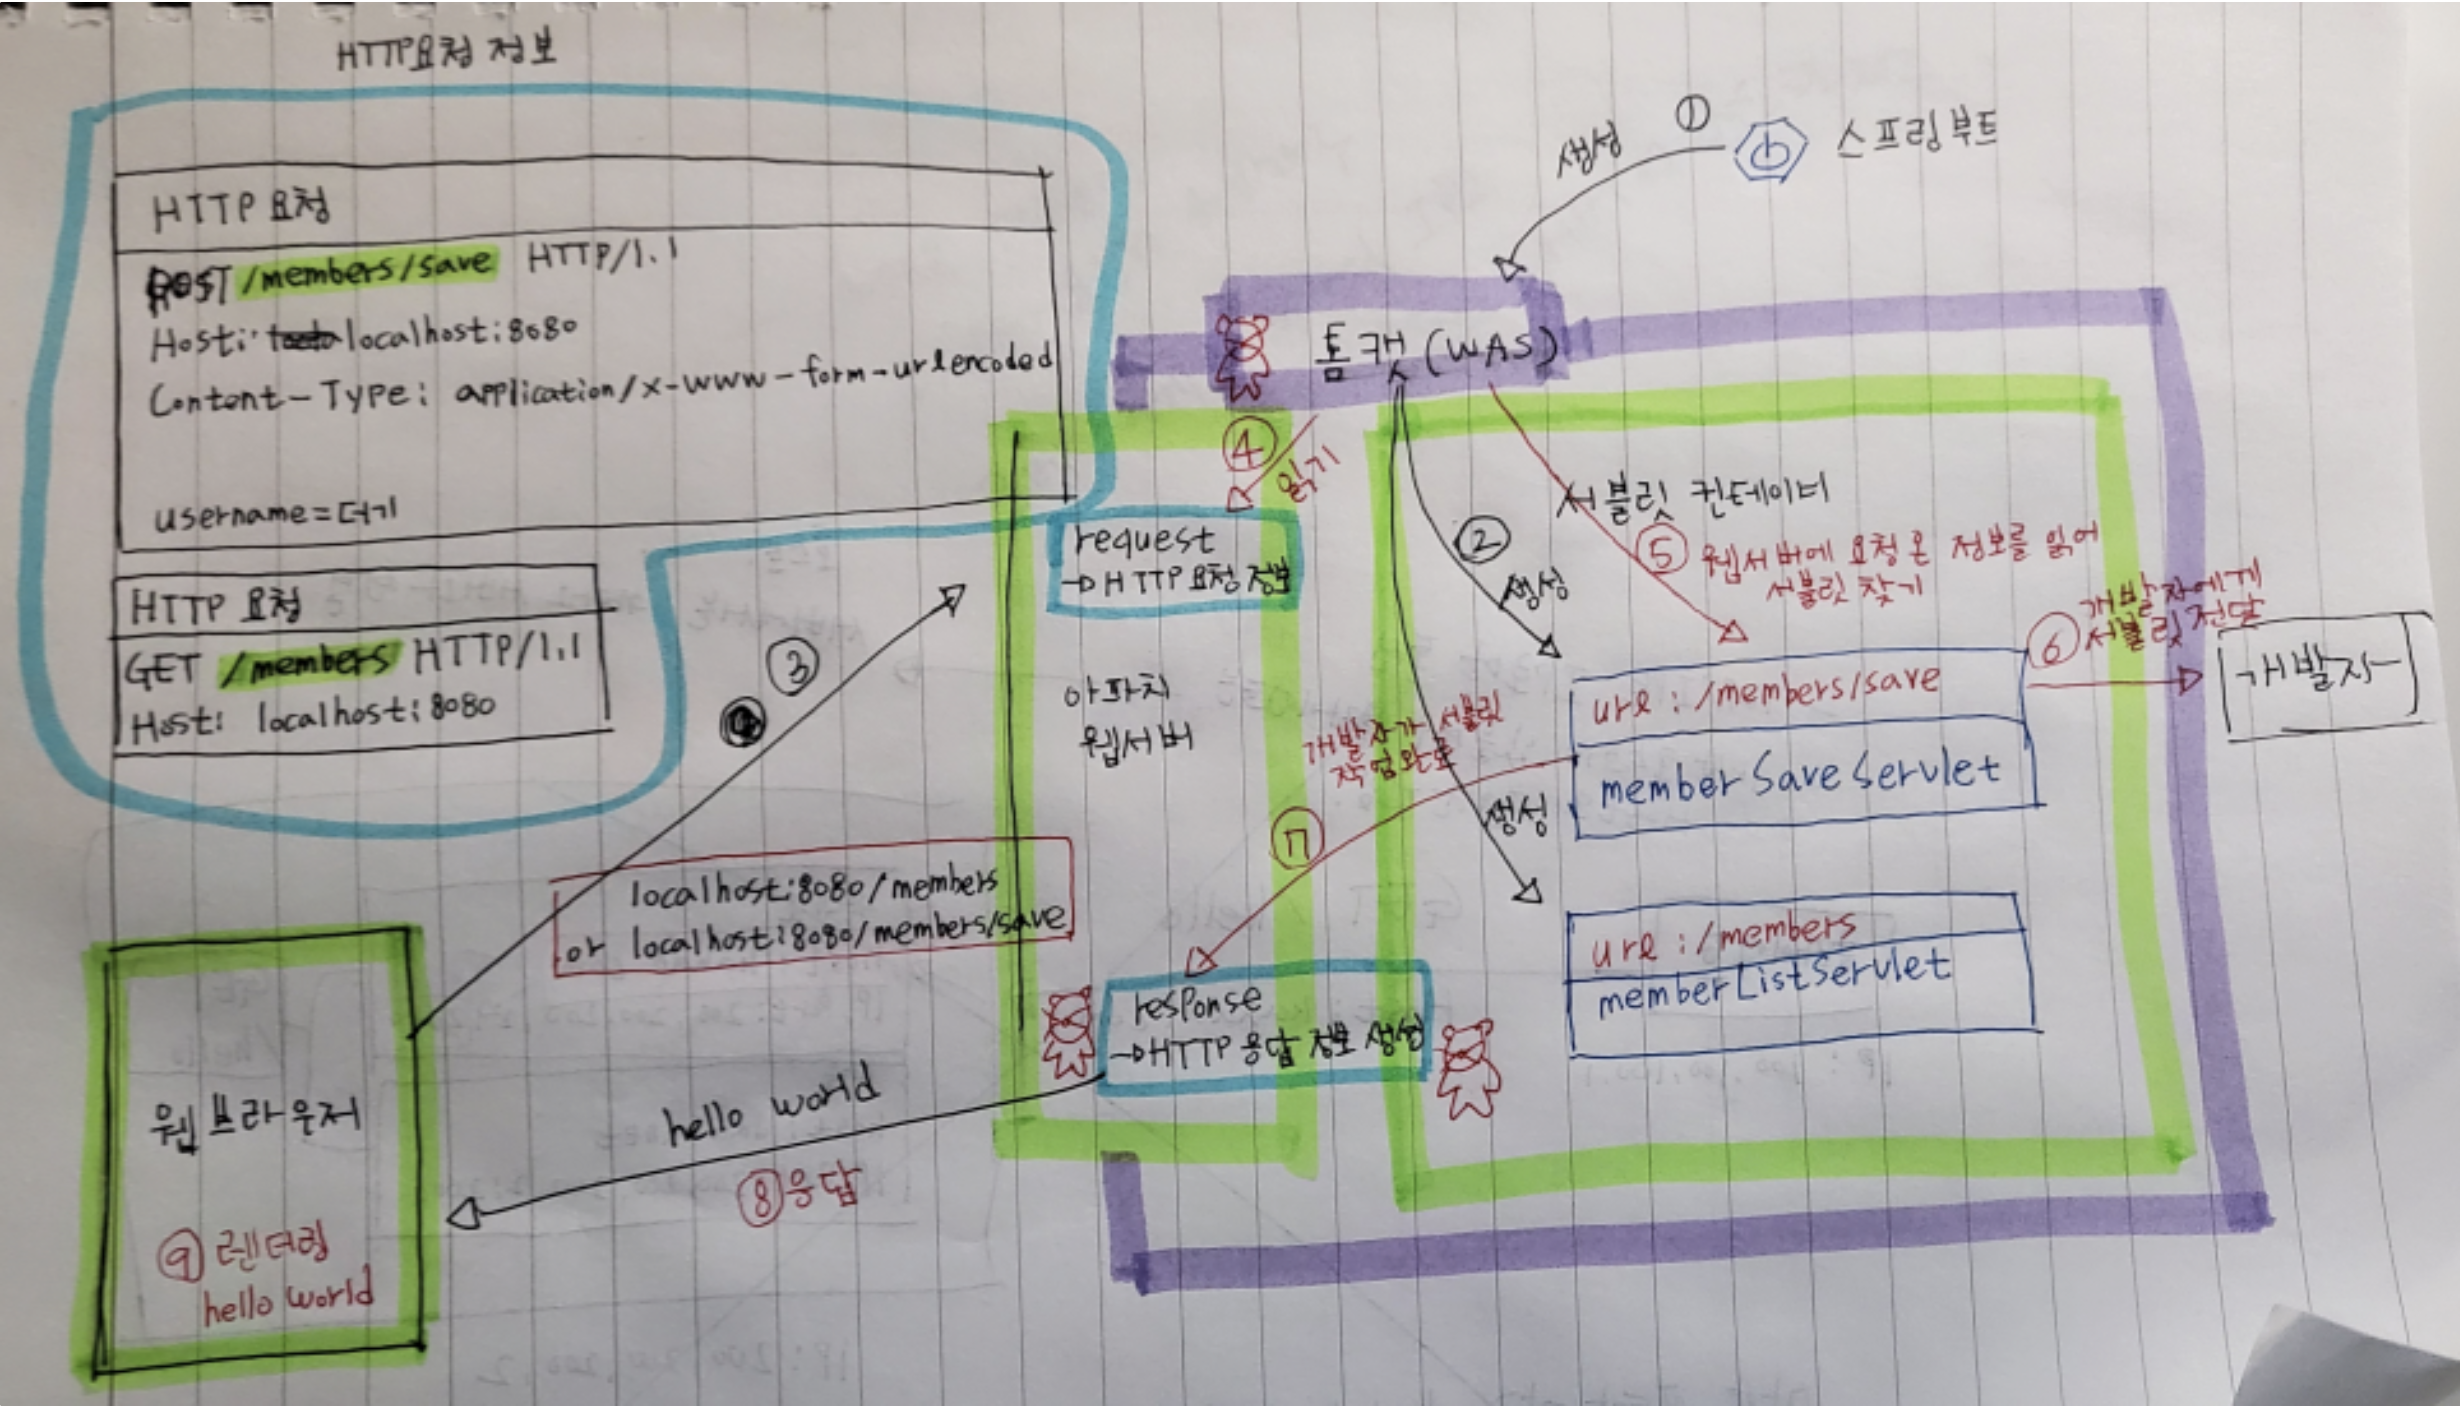 HTTP요청 정보
HTTP 요청
POST /members/save HTTP/1.1
Host: localhost:8080
Content-Type: application/x-www-form-urlencoded
username=더기
HTTP 요청
GET /members HTTP/1.1
Host: localhost:8080
① 생성
스프링부트
톰캣(WAS)
④ 읽기
request
→HTTP 요청 정보
아파치
웹서버
서블릿 컨테이너
② 생성
⑤ 웹서버에 요청 온 정보를 읽어
서블릿 찾기
⑥ 개발자에게
서블릿 전달
개발자
url : /members/save
memberSaveServlet
개발자가 서블릿
작업완료
⑦
생성
url : /members
memberListServlet
③
localhost:8080/members
or localhost:8080/members/save
response
→HTTP 응답 정보 생성
hello world
⑧ 응답
웹브라우저
⑨ 렌더링
hello world